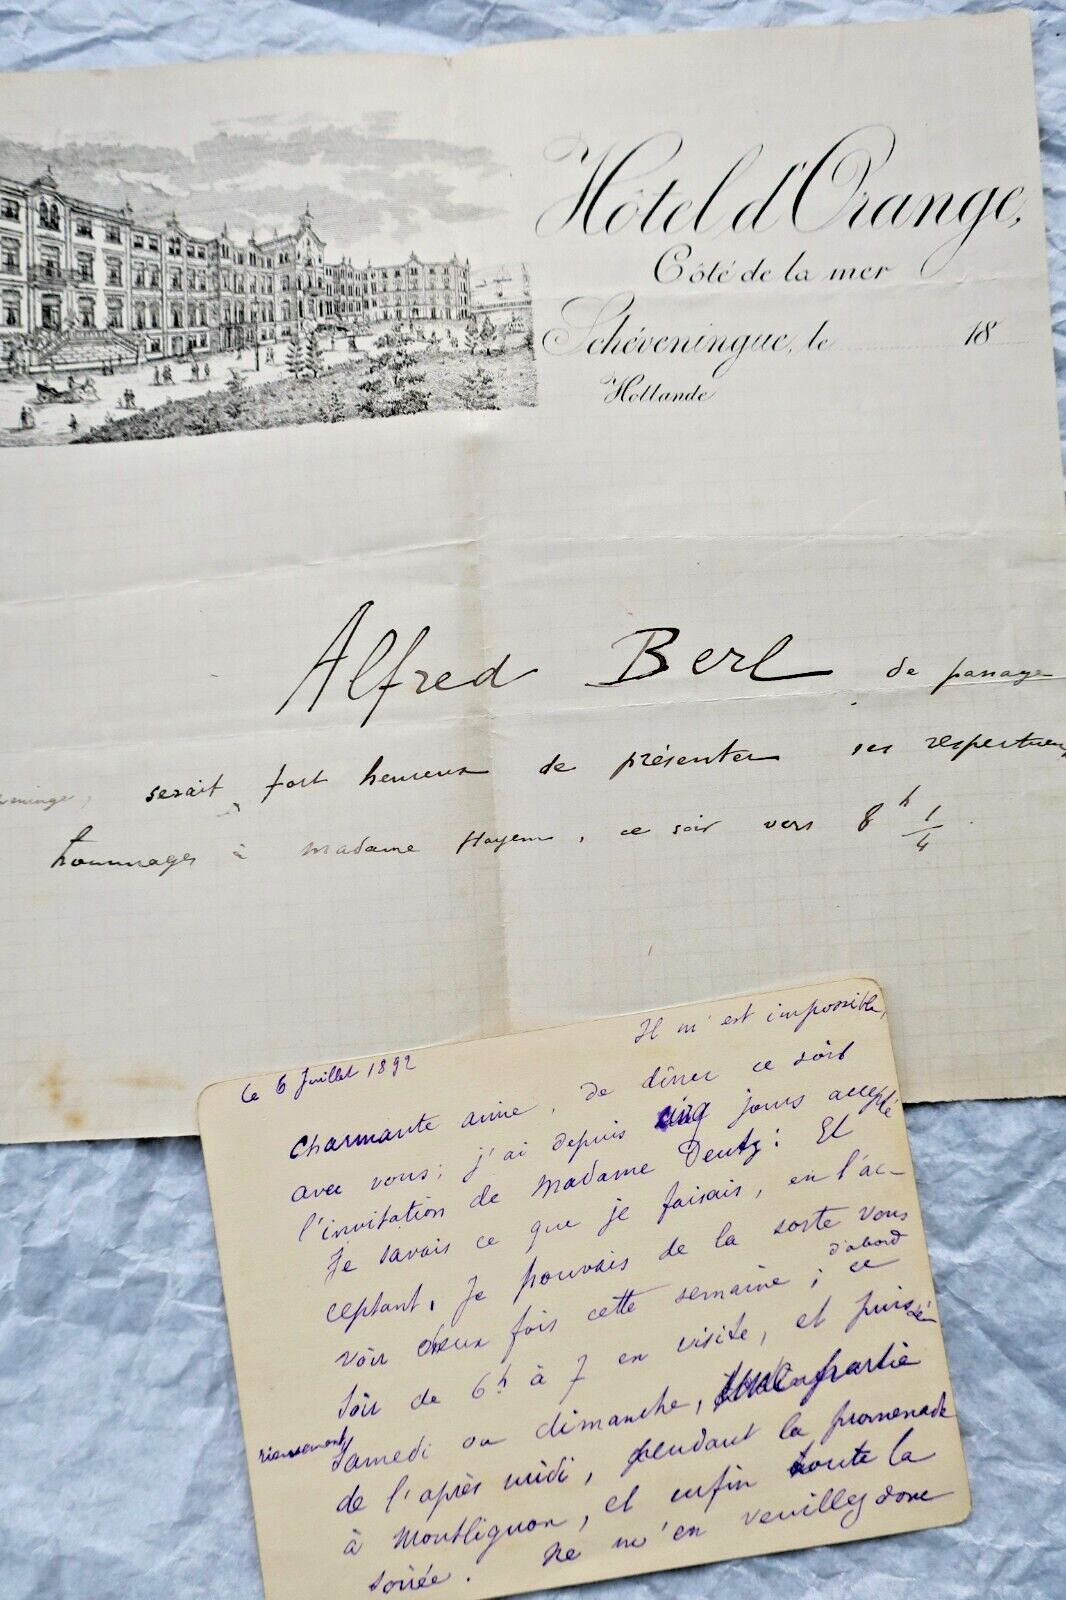 Hôtel d'Orange,
Côté de la mer
Schéveningue, le 18
Hollande
Alfred Berl de passage
serait fort heureux de présenter ses respectueux
hommages à Madame Hayem, ce soir vers 8 h 1/4.
Ce 6 Juillet 1892
Il m'est impossible,
charmante amie, de dîner ce soir
avec vous; j'ai depuis cinq jours accepté
l'invitation de Madame Deutz: Et
Je savais ce que je faisais, en l'ac-
ceptant, Je pouvais de la sorte vous
voir deux fois cette semaine; d'abord ce
soir de 6h à 7 en visite, et puis
Samedi ou dimanche, partie
de l'après midi, pendant la promenade
à Montlignon, et enfin toute la
soirée. Ne m'en veuillez donc